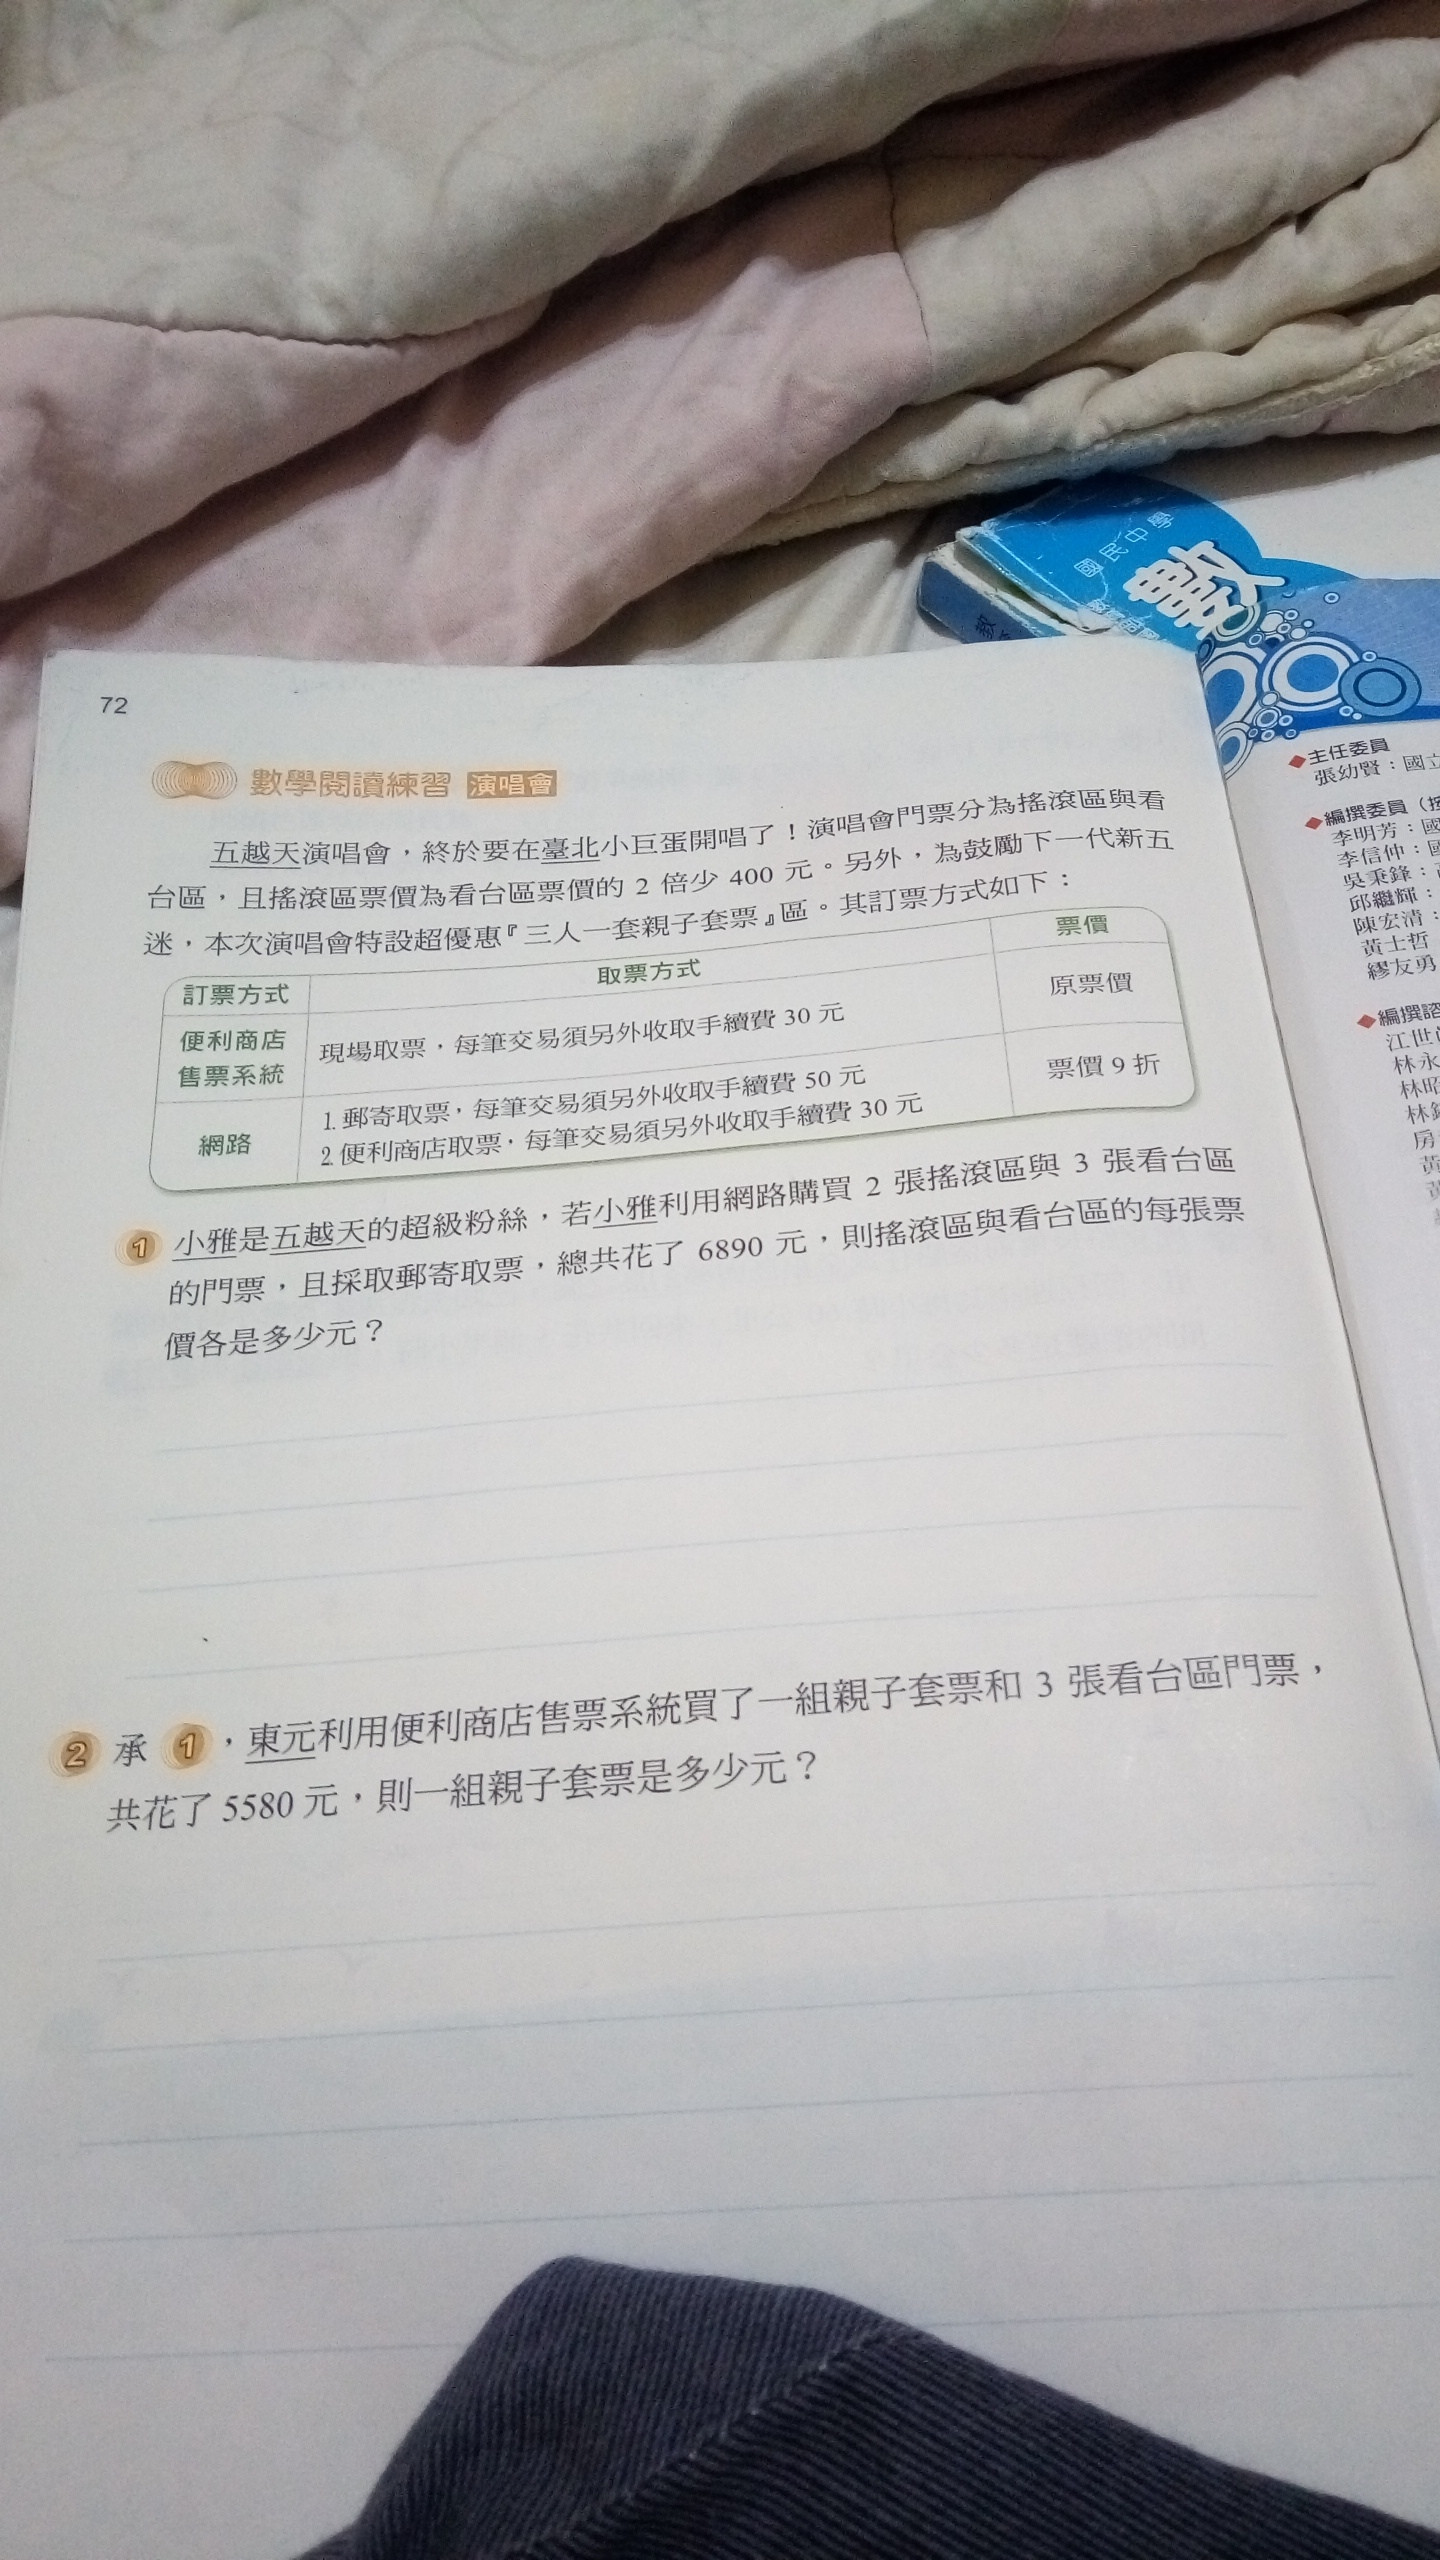 國民中學
數
72
數學閱讀練習 演唱會
五越天演唱會，終於要在臺北小巨蛋開唱了！演唱會門票分為搖滾區與看
台區，且搖滾區票價為看台區票價的 2 倍少 400 元。另外，為鼓勵下一代新五
迷，本次演唱會特設超優惠『三人一套親子套票』區。其訂票方式如下：
訂票方式 取票方式 票價
便利商店
售票系統
現場取票，每筆交易須另外收取手續費 30 元
原票價
網路
1. 郵寄取票，每筆交易須另外收取手續費 50 元
2. 便利商店取票，每筆交易須另外收取手續費 30 元
票價 9 折
1 小雅是五越天的超級粉絲，若小雅利用網路購買 2 張搖滾區與 3 張看台區
的門票，且採取郵寄取票，總共花了 6890 元，則搖滾區與看台區的每張票
價各是多少元？
2 承 1，東元利用便利商店售票系統買了一組親子套票和 3 張看台區門票，
共花了 5580 元，則一組親子套票是多少元？
主任委員
張幼賢：國立
編撰委員（按
李明芳：國
李信仲：國
吳秉鋒：
邱繼輝：
陳宏清：
黃士哲
繆友勇
編撰諮
江世
林永
林昭
林
房
黃